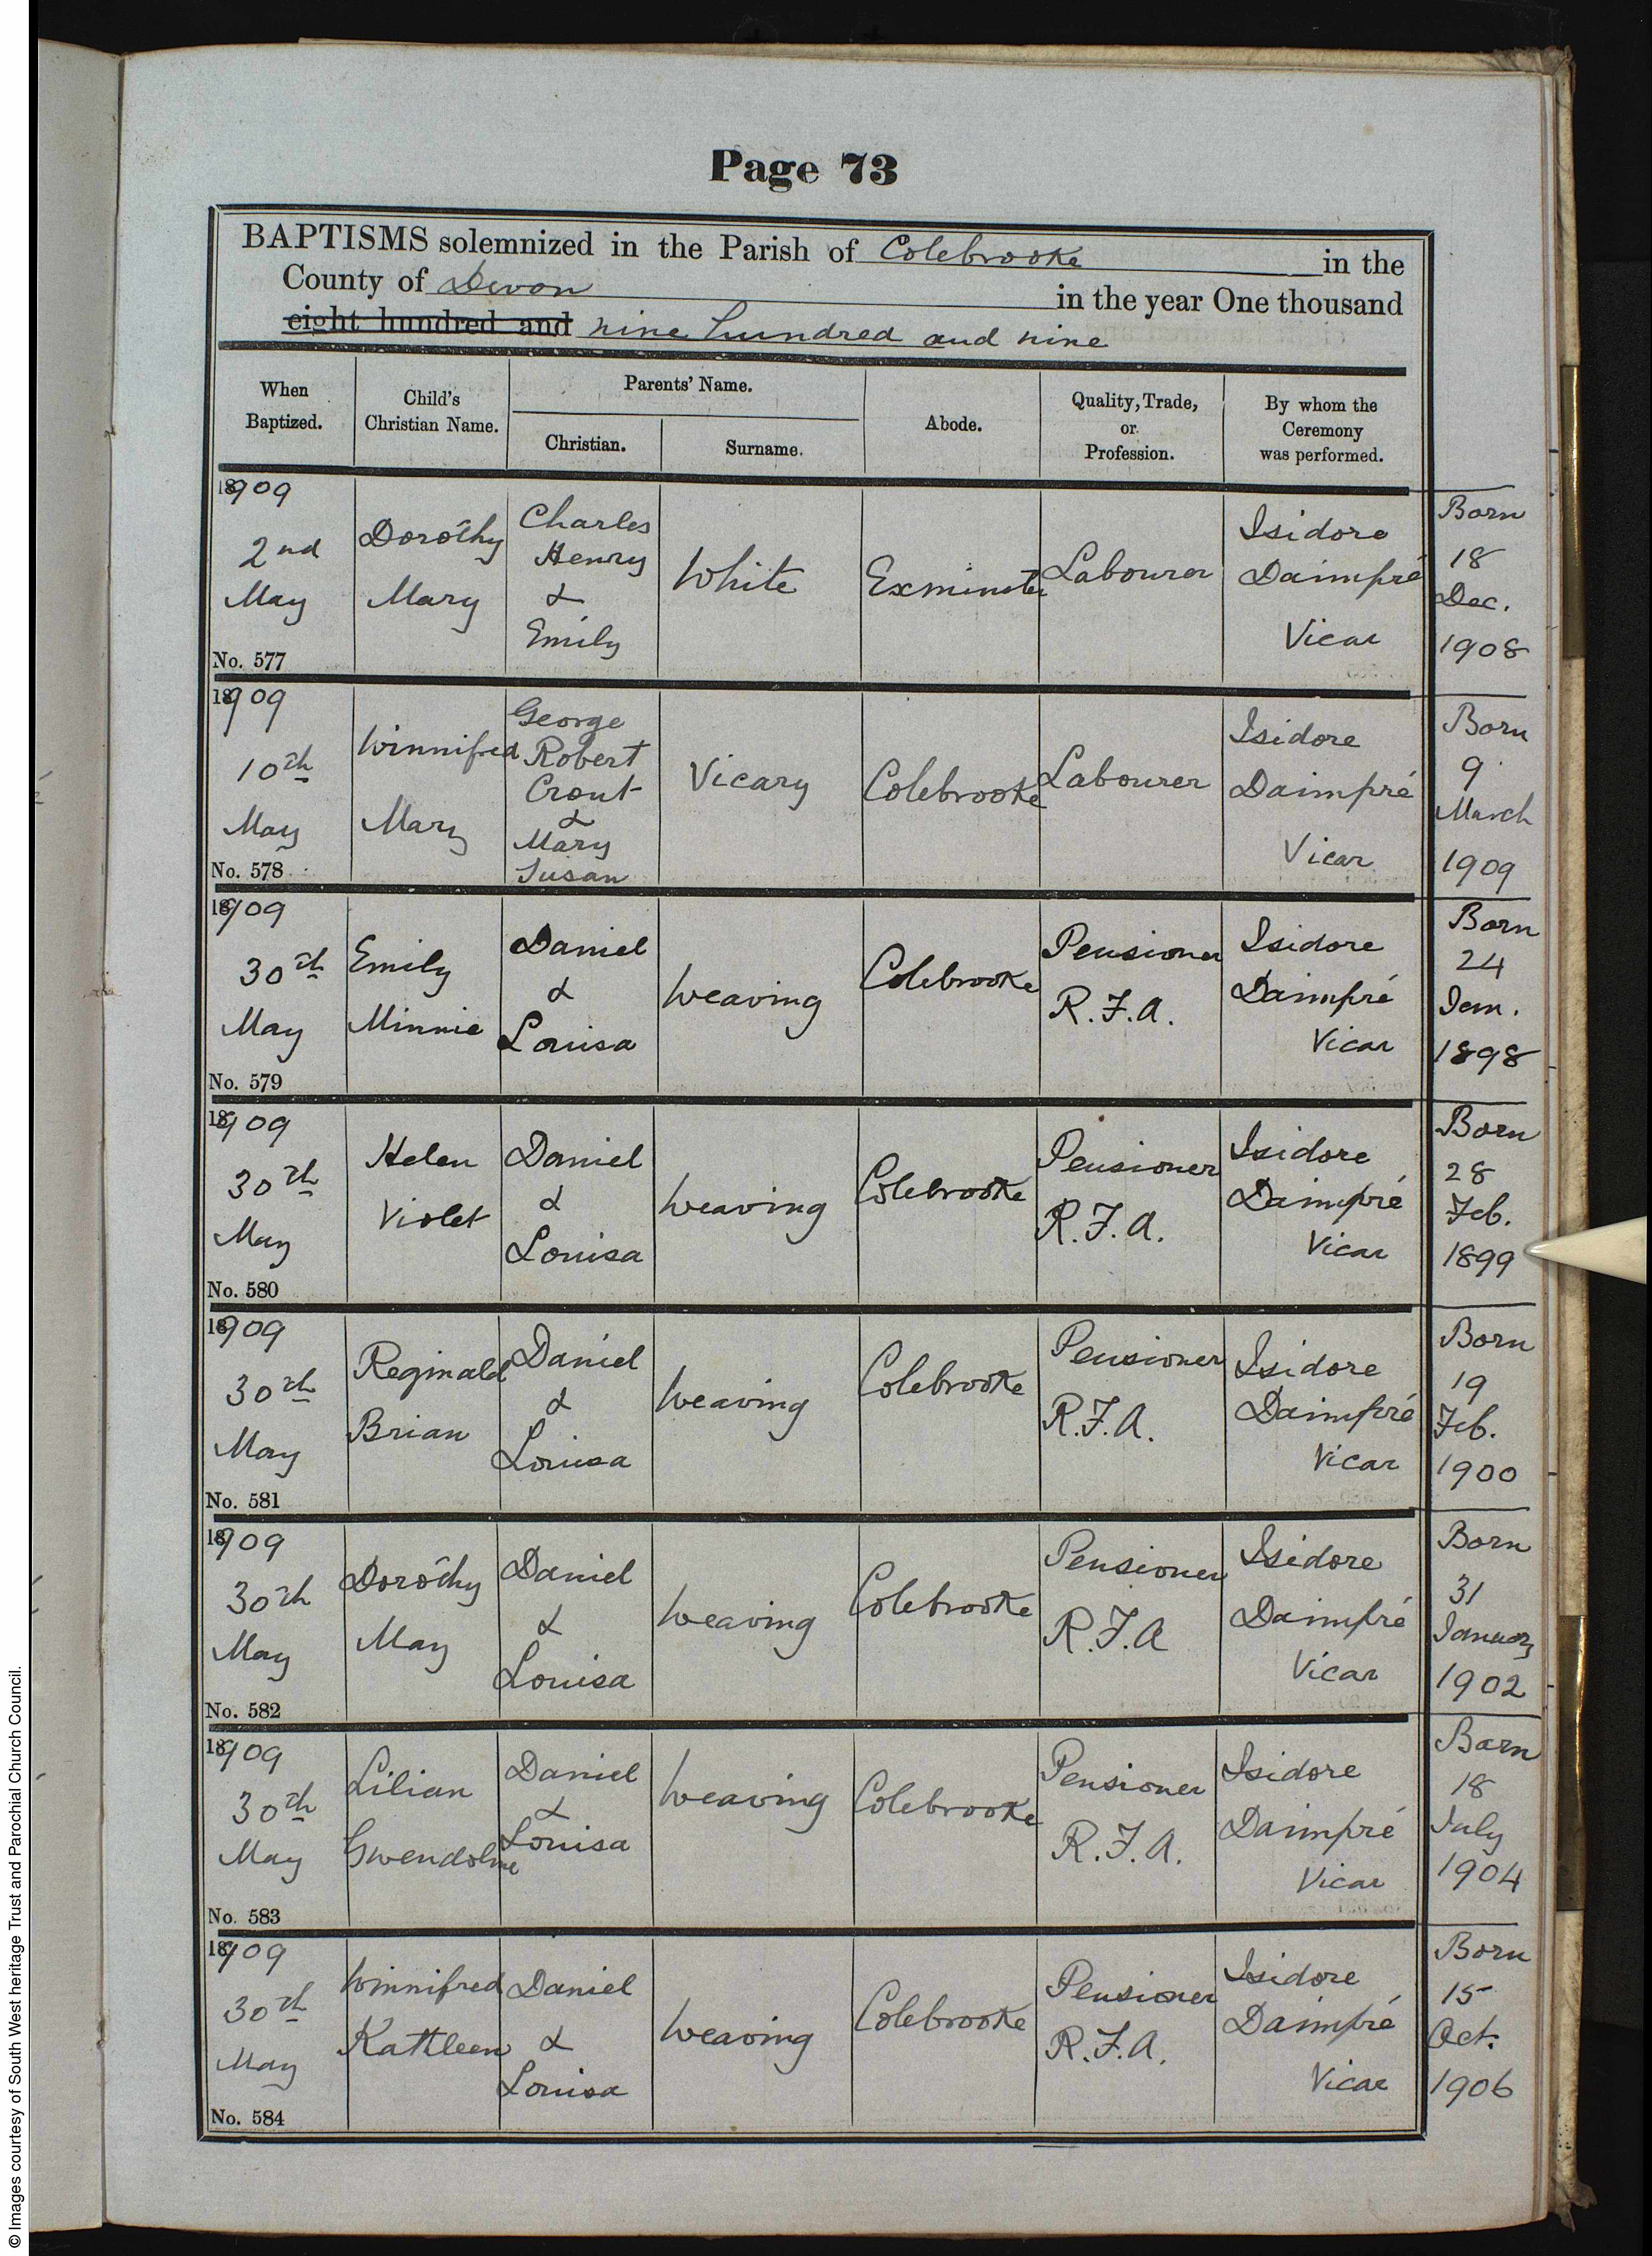 Page 73
BAPTISMS solemnized in the Parish of Colebrooke in the
County of Devon in the year One thousand
eight hundred and nine hundred and nine
When Baptized.
Child's Christian Name.
Parents' Name.
Christian.
Surname.
Abode.
Quality, Trade, or Profession.
By whom the Ceremony was performed.
1909
2nd
May
No. 577
Dorothy
Mary
Charles
Henry
&
Emily
White
Exminster
Labourer
Isidore
Daimpré
Vicar
Born
18
Dec.
1908
1909
10th
May
No. 578
Winnifred
Mary
George
Robert
Crout
&
Mary
Susan
Vicary
Colebrooke
Labourer
Isidore
Daimpré
Vicar
Born
9
March
1909
1909
30th
May
No. 579
Emily
Minnie
Daniel
&
Louisa
Weaving
Colebrooke
Pensioner
R.F.A.
Isidore
Daimpré
Vicar
Born
24
Jan.
1898
1909
30th
May
No. 580
Helen
Violet
Daniel
&
Louisa
Weaving
Colebrooke
Pensioner
R.F.A.
Isidore
Daimpré
Vicar
Born
28
Feb.
1899
1909
30th
May
No. 581
Reginald
Brian
Daniel
&
Louisa
Weaving
Colebrooke
Pensioner
R.F.A.
Isidore
Daimpré
Vicar
Born
19
Feb.
1900
1909
30th
May
No. 582
Dorothy
May
Daniel
&
Louisa
Weaving
Colebrooke
Pensioner
R.F.A
Isidore
Daimpré
Vicar
Born
31
January
1902
1909
30th
May
No. 583
Lilian
Gwendoline
Daniel
&
Louisa
Weaving
Colebrooke
Pensioner
R.F.A.
Isidore
Daimpré
Vicar
Born
18
July
1904
1909
30th
May
No. 584
Winnifred
Kathleen
Daniel
&
Louisa
Weaving
Colebrooke
Pensioner
R.F.A.
Isidore
Daimpré
Vicar
Born
15
Oct.
1906
© Images courtesy of South West heritage Trust and Parochial Church Council.